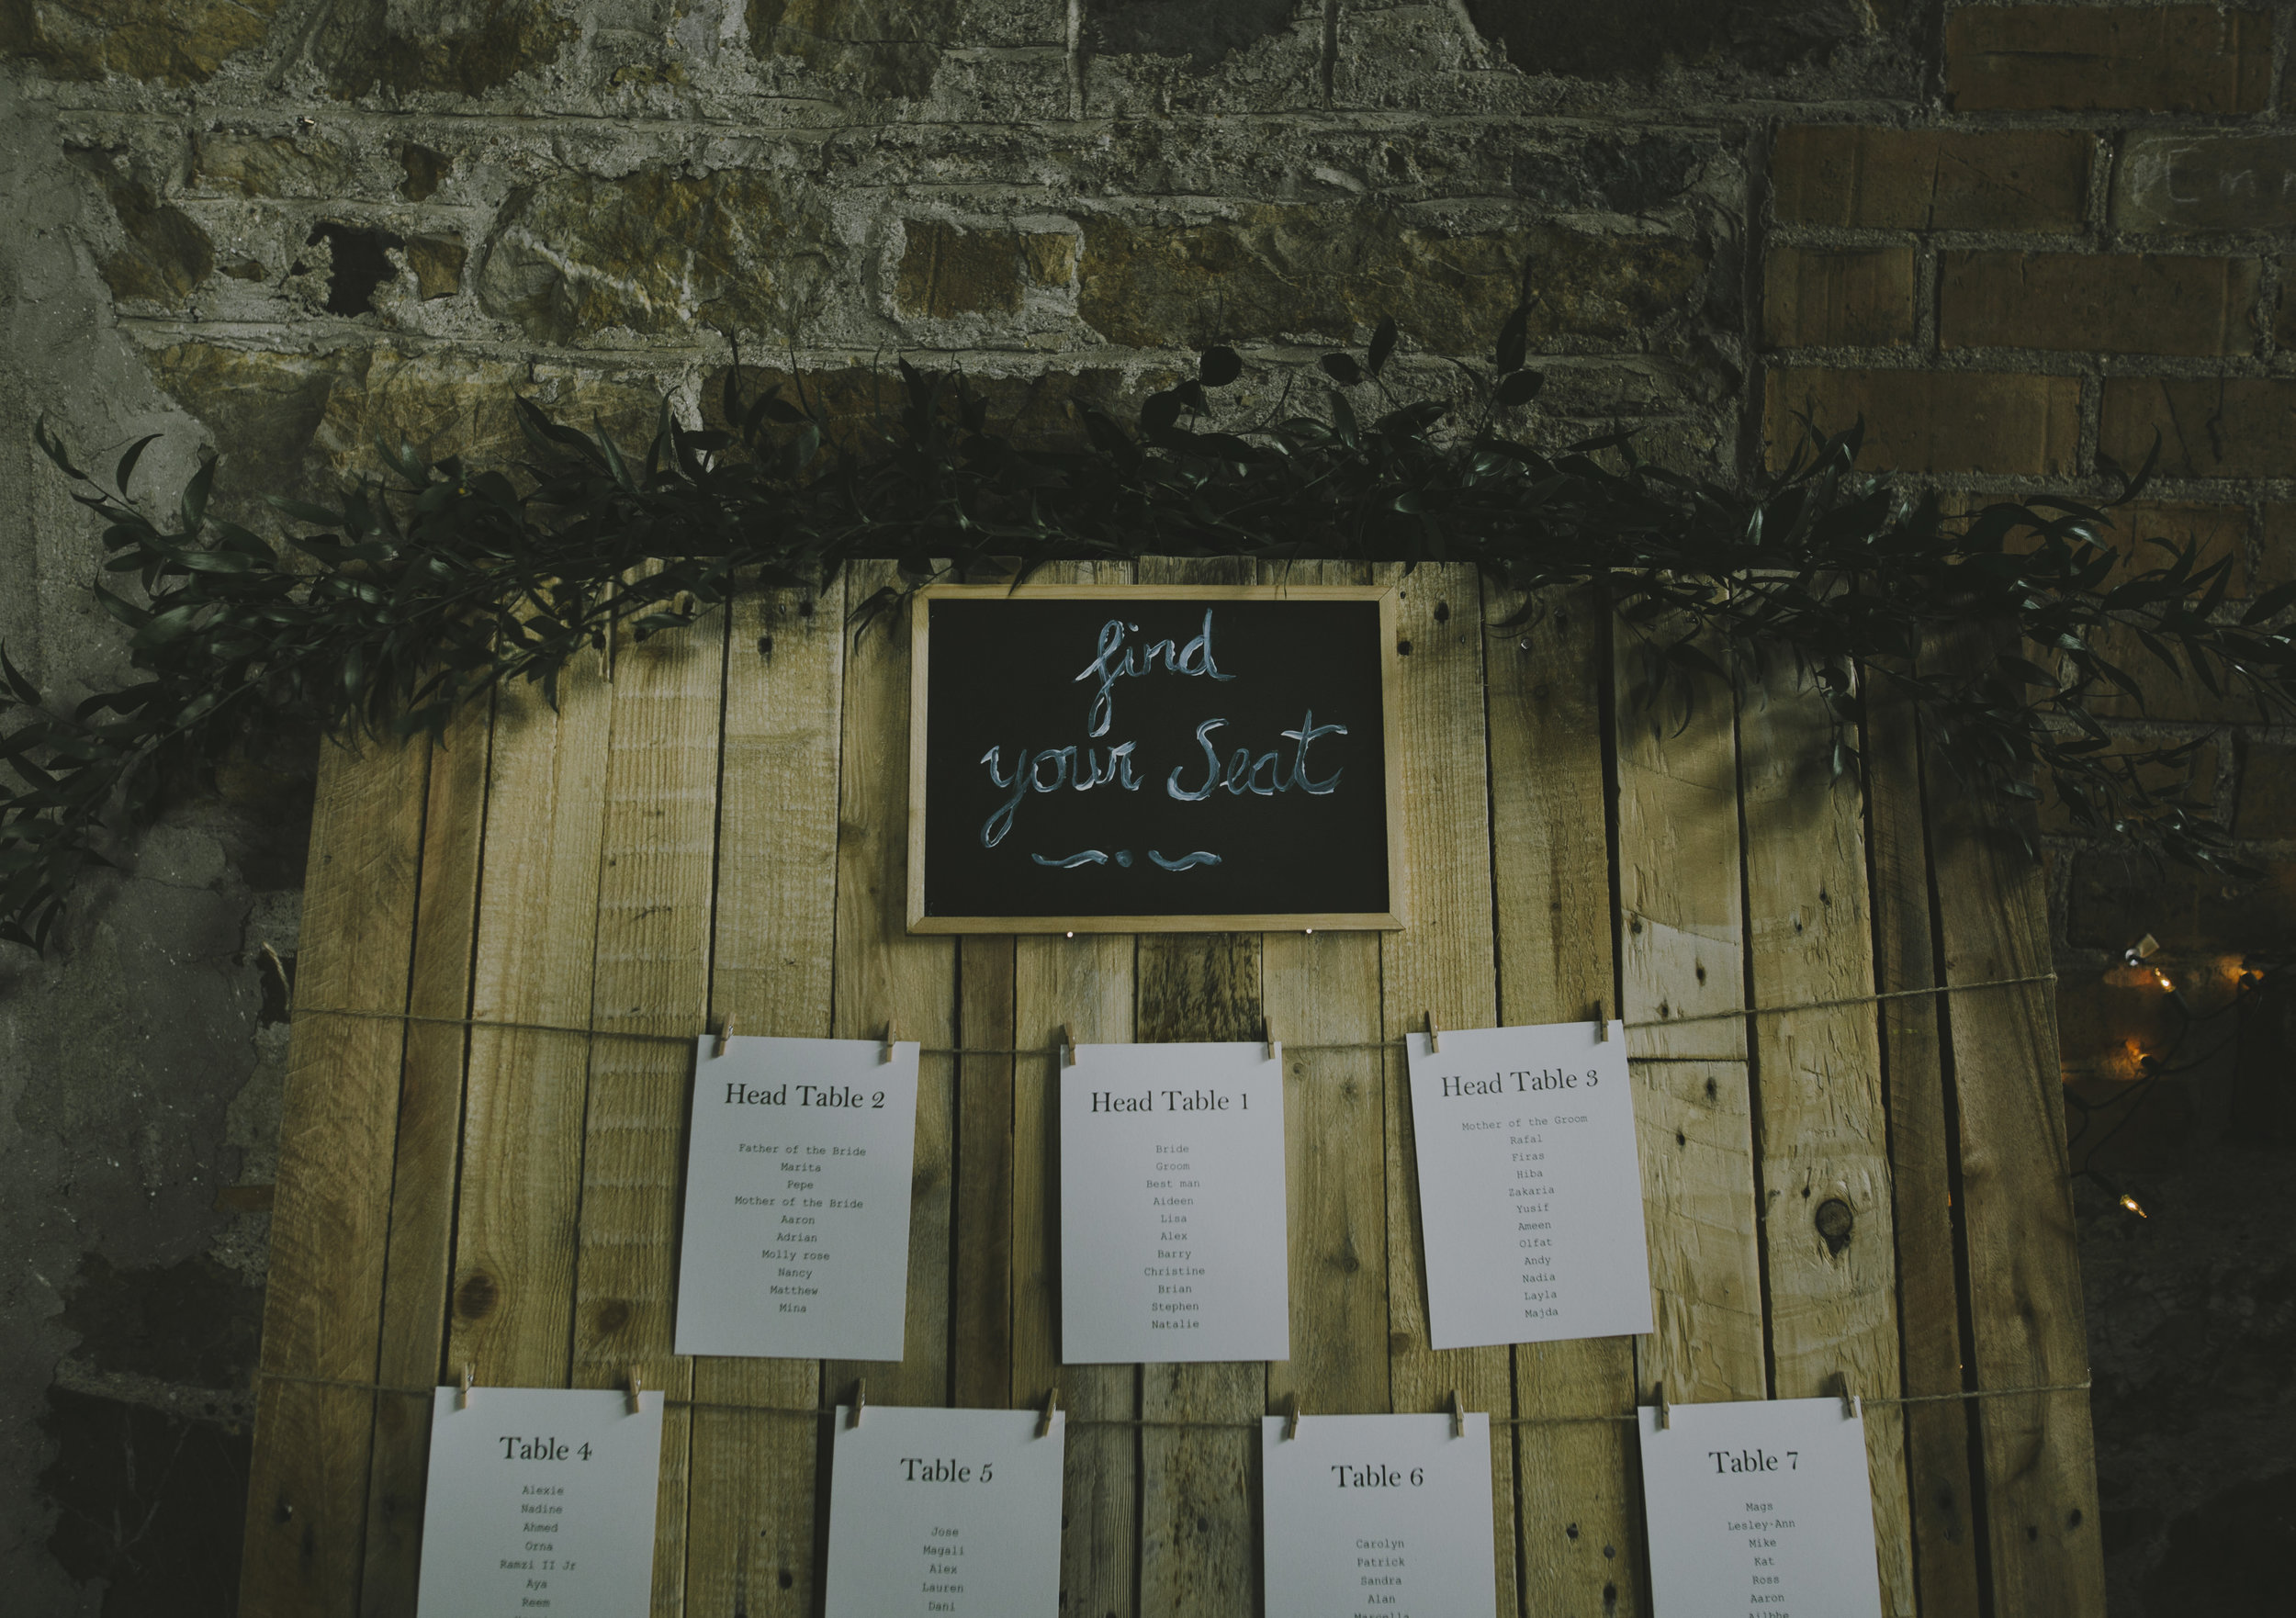 find
your Seat
Head Table 2
Father of the Bride
Marita
Pepe
Mother of the Bride
Aaron
Adrian
Molly rose
Nancy
Matthew
Mina
Head Table 1
Bride
Groom
Best man
Aideen
Lisa
Alex
Barry
Christine
Brian
Stephen
Natalie
Head Table 3
Mother of the Groom
Rafal
Firas
Hiba
Zakaria
Yusif
Ameen
Olfat
Andy
Nadia
Layla
Majda
Table 4
Alexie
Nadine
Ahmed
Orna
Ramzi II Jr
Aya
Reem
Table 5
Jose
Magali
Alex
Lauren
Dani
Table 6
Carolyn
Patrick
Sandra
Alan
Marcella
Table 7
Mags
Lesley-Ann
Mike
Kat
Ross
Aaron
Ailbhe